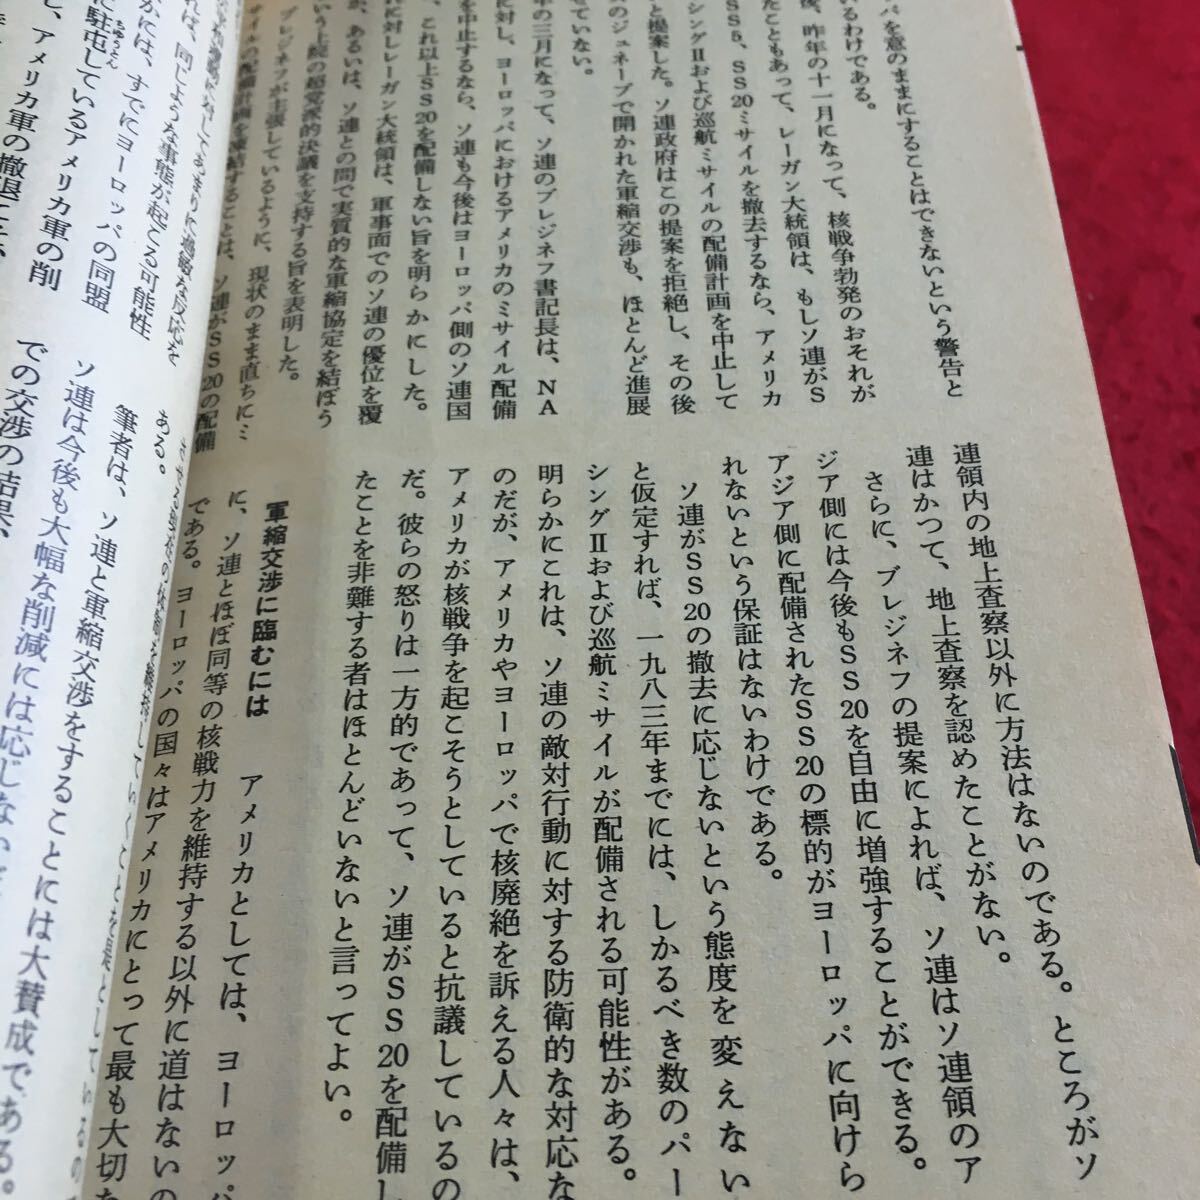 パを意のままにすることはできないという警告と
いるわけである。
後、昨年の十一月になって、核戦争勃発のおそれが
たこともあって、レーガン大統領は、もしソ連がS
SS5、SS20ミサイルを撤去するなら、アメリカ
シングⅡおよび巡航ミサイルの配備計画を中止して
と提案した。ソ連政府はこの提案を拒絶し、その後
のジュネーブで開かれた軍縮交渉も、ほとんど進展
ていない。
年の三月になって、ソ連のブレジネフ書記長は、NA
に対し、ヨーロッパにおけるアメリカのミサイル配備
を中止するなら、ソ連も今後はヨーロッパ側のソ連国
、これ以上SS20を配備しない旨を明らかにした。
に対しレーガン大統領は、軍事面でのソ連の優位を覆
が、あるいは、ソ連との間で実質的な軍縮協定を結ぼう
いう上院の超党派的決議を支持する旨を表明した。
ブレジネフが主張しているように、現状のまま直ちにミ
サイルの配備計画を凍結することは、ソ連がSS20の配備
連領内の地上査察以外に方法はないのである。ところがソ
連はかつて、地上査察を認めたことがない。
さらに、ブレジネフの提案によれば、ソ連はソ連領のア
ジア側には今後もSS20を自由に増強することができる。
アジア側に配備されたSS20の標的がヨーロッパに向けら
れないという保証はないわけである。
ソ連がSS20の撤去に応じないという態度を変えない
と仮定すれば、一九八三年までには、しかるべき数のパー
シングⅡおよび巡航ミサイルが配備される可能性がある。
明らかにこれは、ソ連の敵対行動に対する防衛的な対応な
のだが、アメリカやヨーロッパで核廃絶を訴える人々は、
アメリカが核戦争を起こそうとしていると抗議しているの
だ。彼らの怒りは一方的であって、ソ連がSS20を配備し
たことを非難する者はほとんどいないと言ってよい。
軍縮交渉に臨むには
アメリカとしては、ヨーロッパ
に、ソ連とほぼ同等の核戦力を維持する以外に道はないの
である。ヨーロッパの国々はアメリカにとって最も大切な
れば、同じような事態が起こる可能性
かには、すでにヨーロッパの同盟
に駐屯しているアメリカ軍の削
ちゅうとん
し、アメリカ軍の撤退
ある。
筆者は、ソ連と軍縮交渉をすることには大賛成である。
ソ連は今後も大幅な削減には応じない
での交渉の結果、